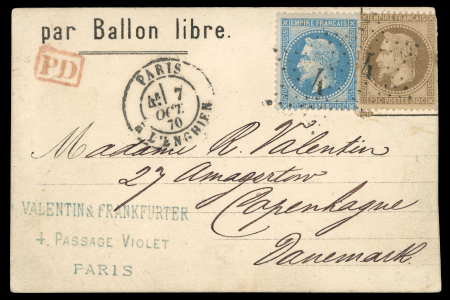 par Ballon libre.
EMPIRE FRANÇAIS
EMPIRE FRANÇAIS
PD
PARIS
7
OCT.
70
R. L'ENGHIEN
4
4
Madame R. Valentin
27 Amagertow
Copenhague
Danemark.
VALENTIN & FRANKFURTER
4, PASSAGE VIOLET
PARIS